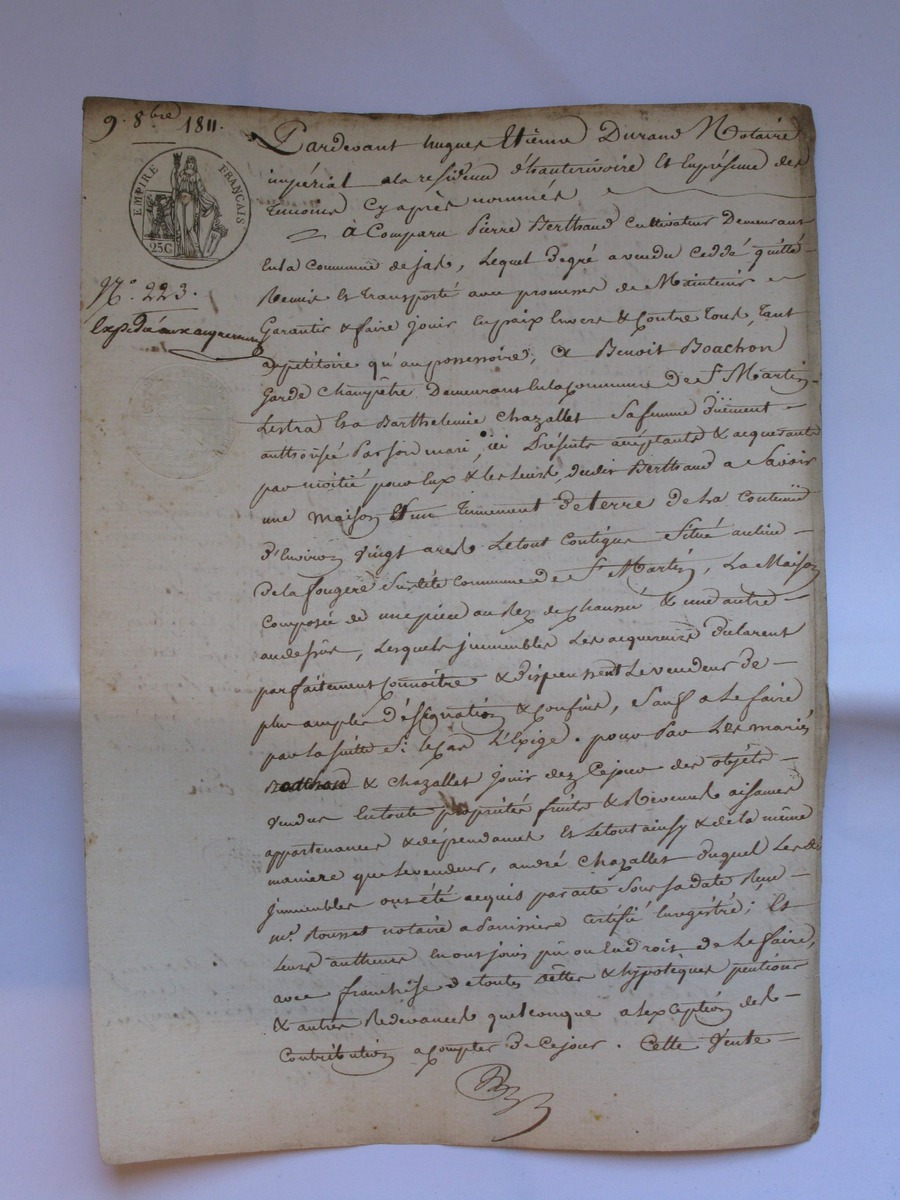 9. 8bre 1811.
EMPIRE FRANÇAIS
25C
N.º 223.
Expédié aux acquereurs
Pardevant hugues Etienne Durand Notaire
impérial a la residence d'hauterivoire Et En présence des
temoins Cy après nommés
À Comparu Pierre Berthaud Cultivateur Demeurant
En la Commune de jas, Lequel De gré a vendu Ceddé quitté
Remis Et transporté avec promesse de Maintenir &
Garantir & faire jouir En paix Envers & Contre tous, tant
au petitoire qu'au possessoire, a Benoit Boachon
Garde Champêtre Demeurant En la Commune de St Martin
Lestra Et a Barthelemie Chazallet Sa femme Dûement
authorisée Par Son mari, ici Présents acceptants & acquerants
par moitié pour Eux & les Leurs, dudit Berthaud a Savoir
une Maison Et un tennement De terre De La Contenüe
d'Environ vingt ares Le tout Contigus Situé au lieu
De la fougere Susdite Commune de St Martin, La Maison
Composée de une pièce au Rez de chaussée & une autre
au dessus, Lesquels jmmeubles Les acquereurs Déclarent
parfaitement Connoitre & dispensent Le vendeur De
plus amples désignation & Confins, Sauf a Le faire
par La Suitte Si Le Cas L'Exige. pour Par Les mariés
Boachon & Chazallet Jouir dez Ce jour des objéts
vendus En toute propriétés fruits & Revenus aisances
appartenances & dépendances Et Le tout ainsy & de la même
maniere que Le vendeur, andré Chazallet Duquel Les dt
jmmeubles ont été acquis par acte Sous Sa date Reçu
me. Rousset notaire a Panissiere Certifié Enregistré; Et
Leurs autheurs En ont joüis pû ou En droit de Le faire,
avec franchise de toutes dettes & hypotèques pentions
& autres Redevances quelconque a L'exception des
Contribution a Compter De Ce jour. Cette Vente